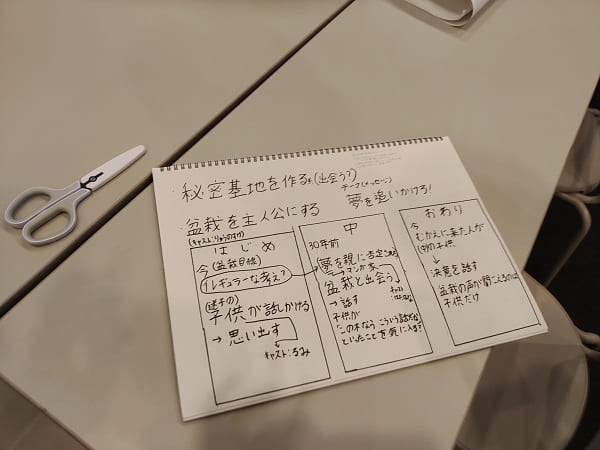 秘密基地を作る。(出会う?)
テーマ(メッセージ)
夢を追いかけろ!
盆栽を主人公にする
はじめ
今(盆栽目線)
イレギュラーな考え?
(迷子の)
子供が話しかける
→思い出す
キャスト:るみ
中
30年前
夢を親に否定
マンガ家
盆栽と出会う
キャスト
→話す
子供が
"この木なら こういう話だな"
といったことを気に入る?
おわり
今
むかえに来た人が
の子供
↓
決意を話す
盆栽の声が聞こえるのは
子供だけ